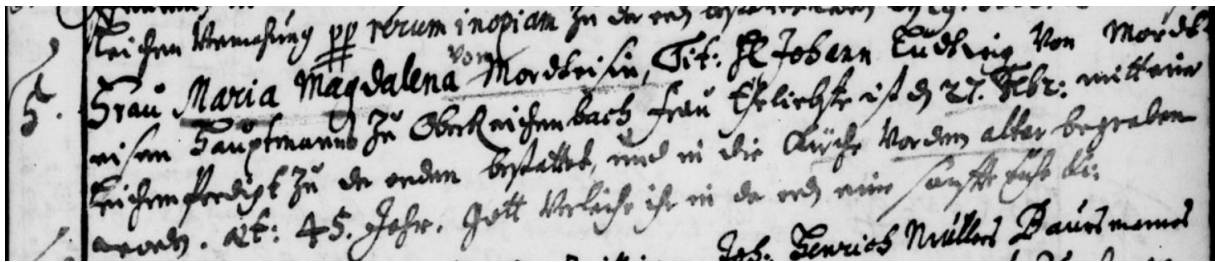 Leichen Vermahnung pp rerum inopiam zu der erden
5. Frau Maria Magdalena von Mordeisin, Tit: H Johann Ludwig Von Mordt-
eisen Hauptmanns zu Oberreichenbach Frau Eheliebste ist d 27. Febr: mitt ein
Leichenpredigt zu der erden bestattet, und in die Kirche Vor dem altar begraben
worden. aet: 45. Jahr. Gott Verleihe ihr in der erd eine sanffte Ruhe
Joh. Henrich Müllers Baursmannes